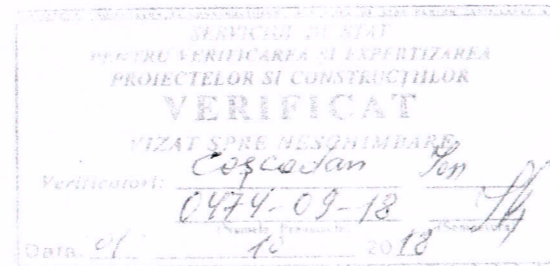 SERVICIUL DE STAT
PENTRU VERIFICAREA SI EXPERTIZAREA
PROIECTELOR SI CONSTRUCTIILOR
VERIFICAT
VIZAT SPRE NESCHIMBARE
Verificatori: Coșcodan Ion
0474-09-18
(Semnatura)
Data 01 10 2018